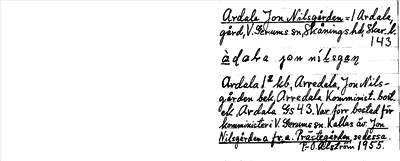 Ardala Jon Nilsgården = 1 Ardala,
gård, V. Gerums sn, Skånings hd, Skar. l.
143
àdaɩa jon nilsgan
Ardala 1² kb, Arredala, Jon Nils-
gården bek, Arredala Komminist. bost.
ek, Ardala Gs 43. Var förr bostad för
komminister i V. Gerums sn. Kallas äv. Jon
Nilsgården a fr. a. Prästegården, se dessa.
P.-O. Alström 1955.